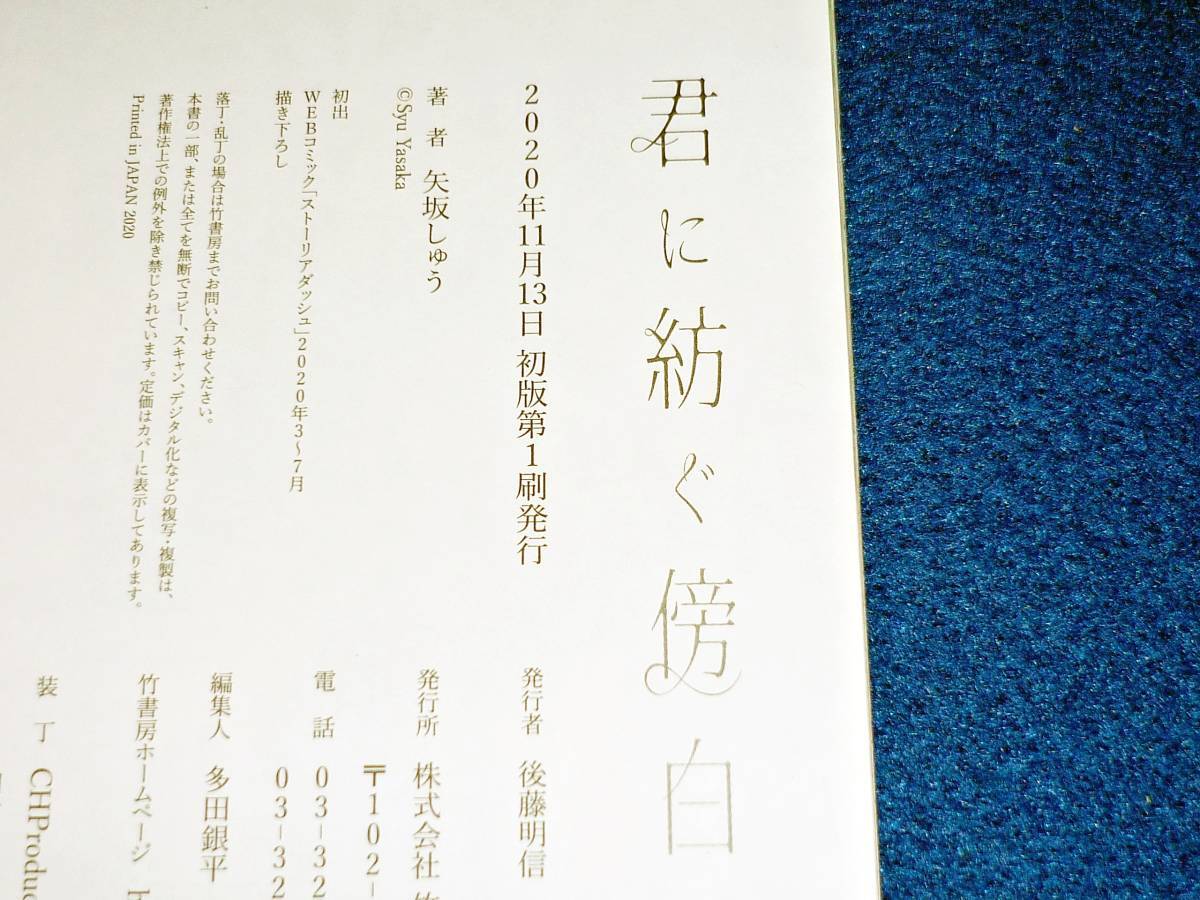 君に紡ぐ傍白
2020年11月13日 初版第1刷発行
著 者 矢坂しゅう
©Syu Yasaka
初出
WEBコミック「ストーリアダッシュ」2020年3～7月
描き下ろし
落丁・乱丁の場合は竹書房までお問い合わせください。
本書の一部、または全てを無断でコピー、スキャン、デジタル化などの複写・複製は、
著作権法上での例外を除き禁じられています。定価はカバーに表示してあります。
Printed in JAPAN 2020
発行者 後藤明信
発行所 株式会社
〒102-
電 話 03-32
03-32
編集人 多田銀平
竹書房ホームページ
装 丁 CHProduc